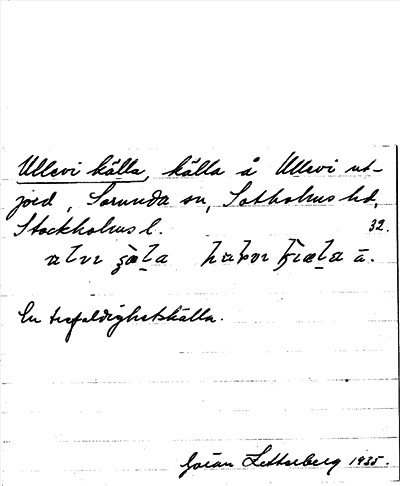 Ullevi källa, källa å Ullevi ut-
jord, Sorunda sn, Sotholms hd,
Stockholms l. 32.
En trefaldighetskälla.
Göran Zetterberg 1935.